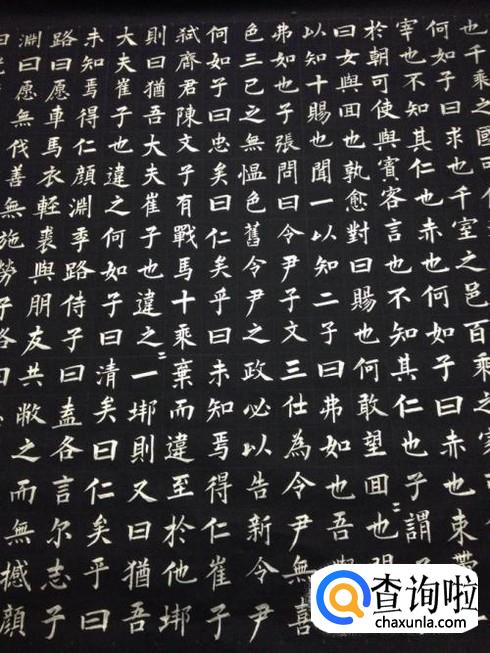 也千乘之國可
何如子曰求也千室之邑百乘之家
宰也不知其仁也赤也何如子曰赤也束帶
於朝可使與賓客言也不知其仁也子謂
曰女與回也孰愈對曰賜也何敢望回〻也聞
以知十賜也聞一以知二子曰弗如也吾與
弗如也子張問曰令尹子文三仕為令尹無喜
色三已之無慍色舊令尹之政必以告新令尹
何如子曰忠矣曰仁矣乎曰未知焉得仁崔子
弑齊君陳文子有戰馬十乘棄而違至於他邦
則曰猶吾大夫崔子也違之〻一邦則又曰猶吾
大夫崔子也違之何如子曰清矣曰仁矣乎曰
未知焉得仁顏淵季路侍子曰盍各言尔志子
路曰愿車馬衣輕裘與朋友共敝之而無憾顏
淵曰愿無伐善無施勞子路曰
查询啦
chaxunla.com